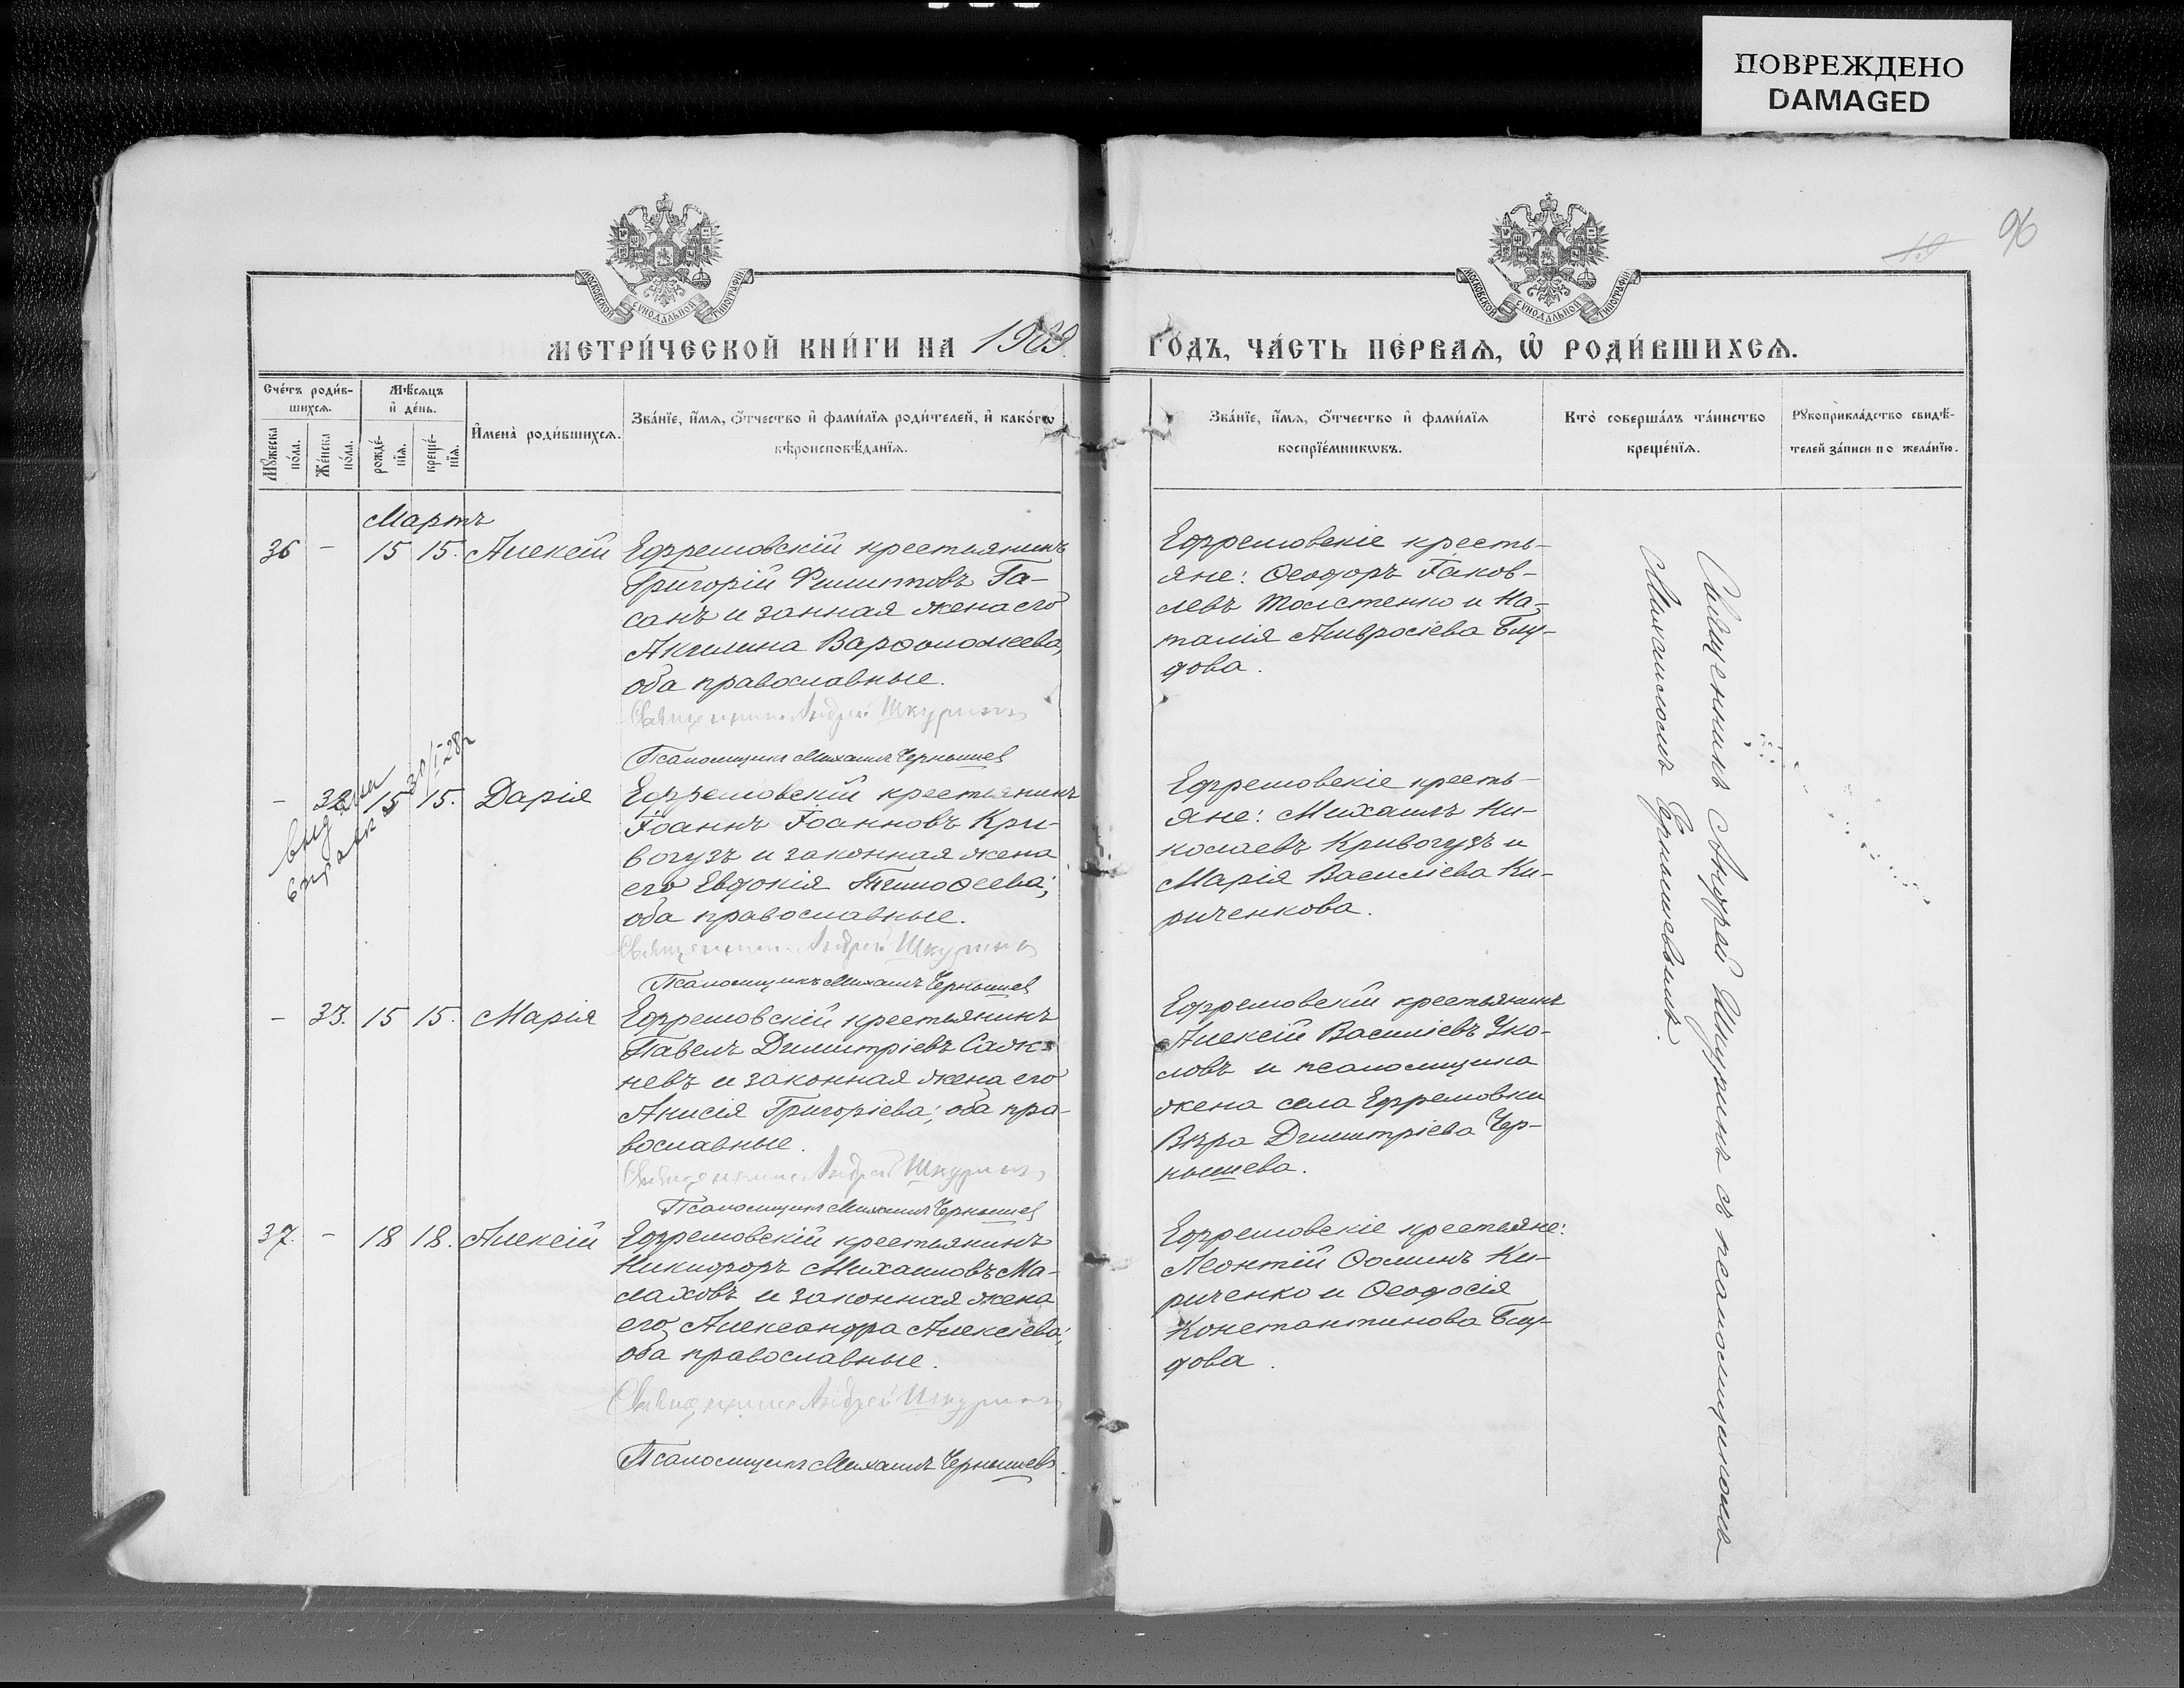 ПОВРЕЖДЕНО
DAMAGED
96
19
МОСКОВСКОЙ СѴНОДАЛЬНОЙ ТИПОГРАФІИ
МОСКОВСКОЙ СѴНОДАЛЬНОЙ ТИПОГРАФІИ
МЕТРИ́ЧЕСКОЙ КНИ́ГИ НА 1909
ГО́ДЪ, ЧА́СТЬ ПЕ́РВАѦ, Ѡ҆ РОДИ́ВШИХСѦ.
Сче́тъ роди́в-
шихсѧ.
Мѣ́сѧцъ
и҆ де́нь.
Мꙋ́жеска
по́ла.
Же́нска
по́ла.
рожде́-
нїѧ.
креще́-
нїѧ.
И҆мена̀ роди́вшихсѧ.
Зва́нїе, и҆́мѧ, ѻ҆́тчество и҆ фами́лїѧ роди́телей, и҆ како́гѡ
вѣроисповѣ́данїѧ.
Зва́нїе, и҆́мѧ, ѻ҆́тчество и҆ фами́лїѧ
воспрїе́мникѡвъ.
Кто̀ соверша́лъ та́инство
креще́нїѧ.
Рꙋкоприкла́дство свидѣ́-
телей за́писи по жела́нїю.
Мартъ
36 - 15 15. Алексій
Ефремовскій крестьянинъ
Григорій Филиповъ Га-
санъ и законная жена его
Акилина Варѳоломеева,
оба православные.
Священникъ Андрей Шкуринъ
Псаломщикъ Михаилъ Чернышев
Ефремовскіе кресть-
яне: Ѳеодоръ Іаков-
левъ Толстенко и На-
талія Амвросіева Блу-
дова.
- 32 15 15. Дарія
31/I-28г
выд
справк
Ефремовскій крестьянинъ
Іоаннъ Іоанновъ Кри-
вогузъ и законная жена
его Евдокія Тимоѳеева;
оба православные.
Священникъ Андрей Шкуринъ
Псаломщикъ Михаилъ Чернышев
Ефремовскіе кресть-
яне: Михаилъ Ни-
колаевъ Кривогузъ и
Марія Василіева Ки-
риченкова.
- 33. 15 15. Марія
Ефремовскій крестьянинъ
Павелъ Димитріевъ Саж-
невъ и законная жена его
Анисія Григоріева; оба пра-
вославные.
Священникъ Андрей Шкуринъ
Псаломщикъ Михаилъ Чернышев
Ефремовскій крестьянинъ
Алексій Василіевъ Уко-
ловъ и псаломщика
жена села Ефремовки
Вѣра Димитріева Чер-
нышева.
37. - 18 18. Алексій
Ефремовскій крестьянинъ
Никифоръ Михаиловъ Ма-
лаховъ и законная жена
его Александра Алексіева;
оба православные.
Священникъ Андрей Шкуринъ
Псаломщикъ Михаилъ Чернышевъ
Ефремовскіе крестьяне:
Леонтій Ѳоминъ Ки-
риченко и Ѳеодосія
Константинова Блу-
дова.
Священникъ Андрей Шкуринъ съ псаломщикомъ
Михаиломъ Чернышевымъ.